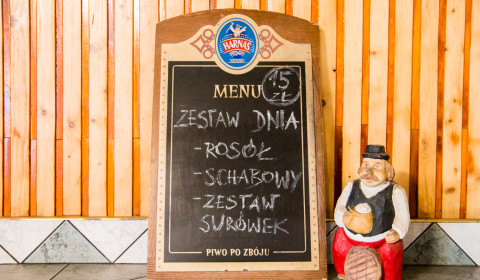 HARNAŚ
MENU
15 ZŁ
ZESTAW DNIA
- ROSÓŁ
- SCHABOWY
- ZESTAW
SURÓWEK
PIWO PO ZBÓJU